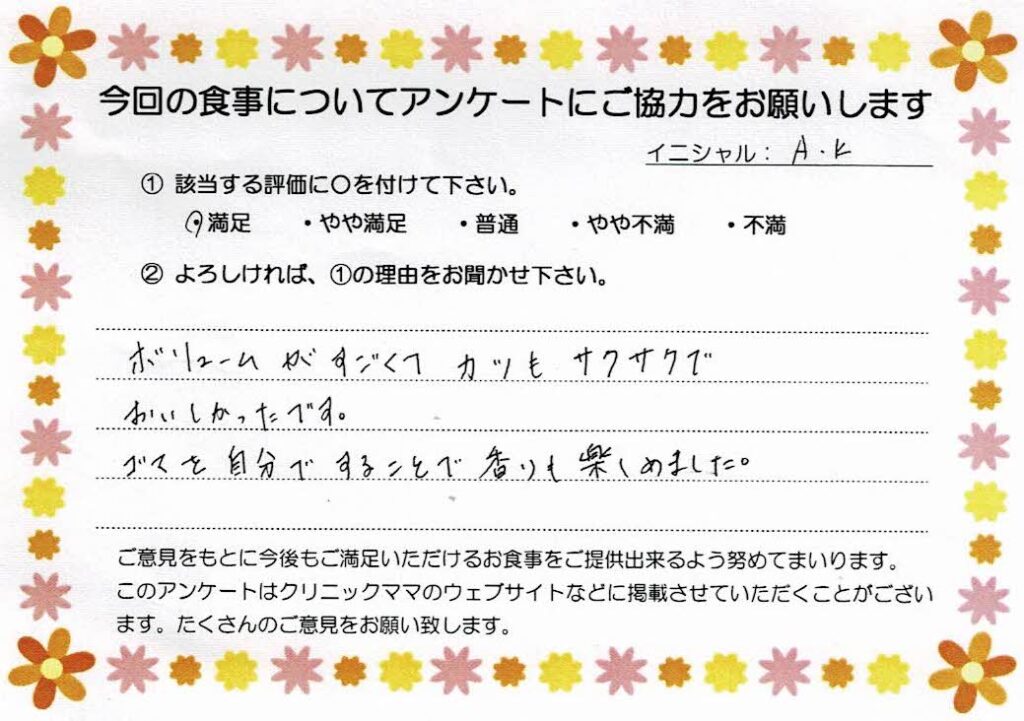 今回の食事についてアンケートにご協力をお願いします
イニシャル： A.K
① 該当する評価に〇を付けて下さい。
・満足 ・やや満足 ・普通 ・やや不満 ・不満
② よろしければ、①の理由をお聞かせ下さい。
ボリュームがすごくて カツも サクサクで
おいしかったです。
ゴマを自分ですることで香りも楽しめました。
ご意見をもとに今後もご満足いただけるお食事をご提供出来るよう努めてまいります。
このアンケートはクリニックママのウェブサイトなどに掲載させていただくことがござい
ます。たくさんのご意見をお願い致します。